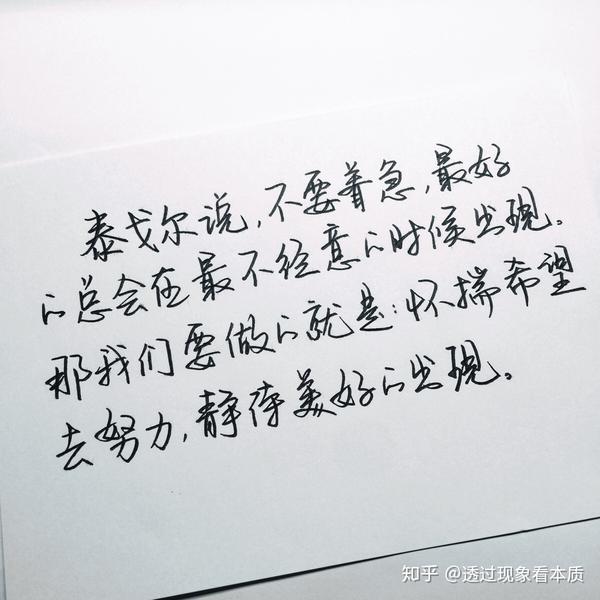 泰戈尔说，不要着急，最好
的总会在最不经意的时候出现。
那我们要做的就是：怀揣希望
去努力，静待美好的出现。
知乎 @透过现象看本质